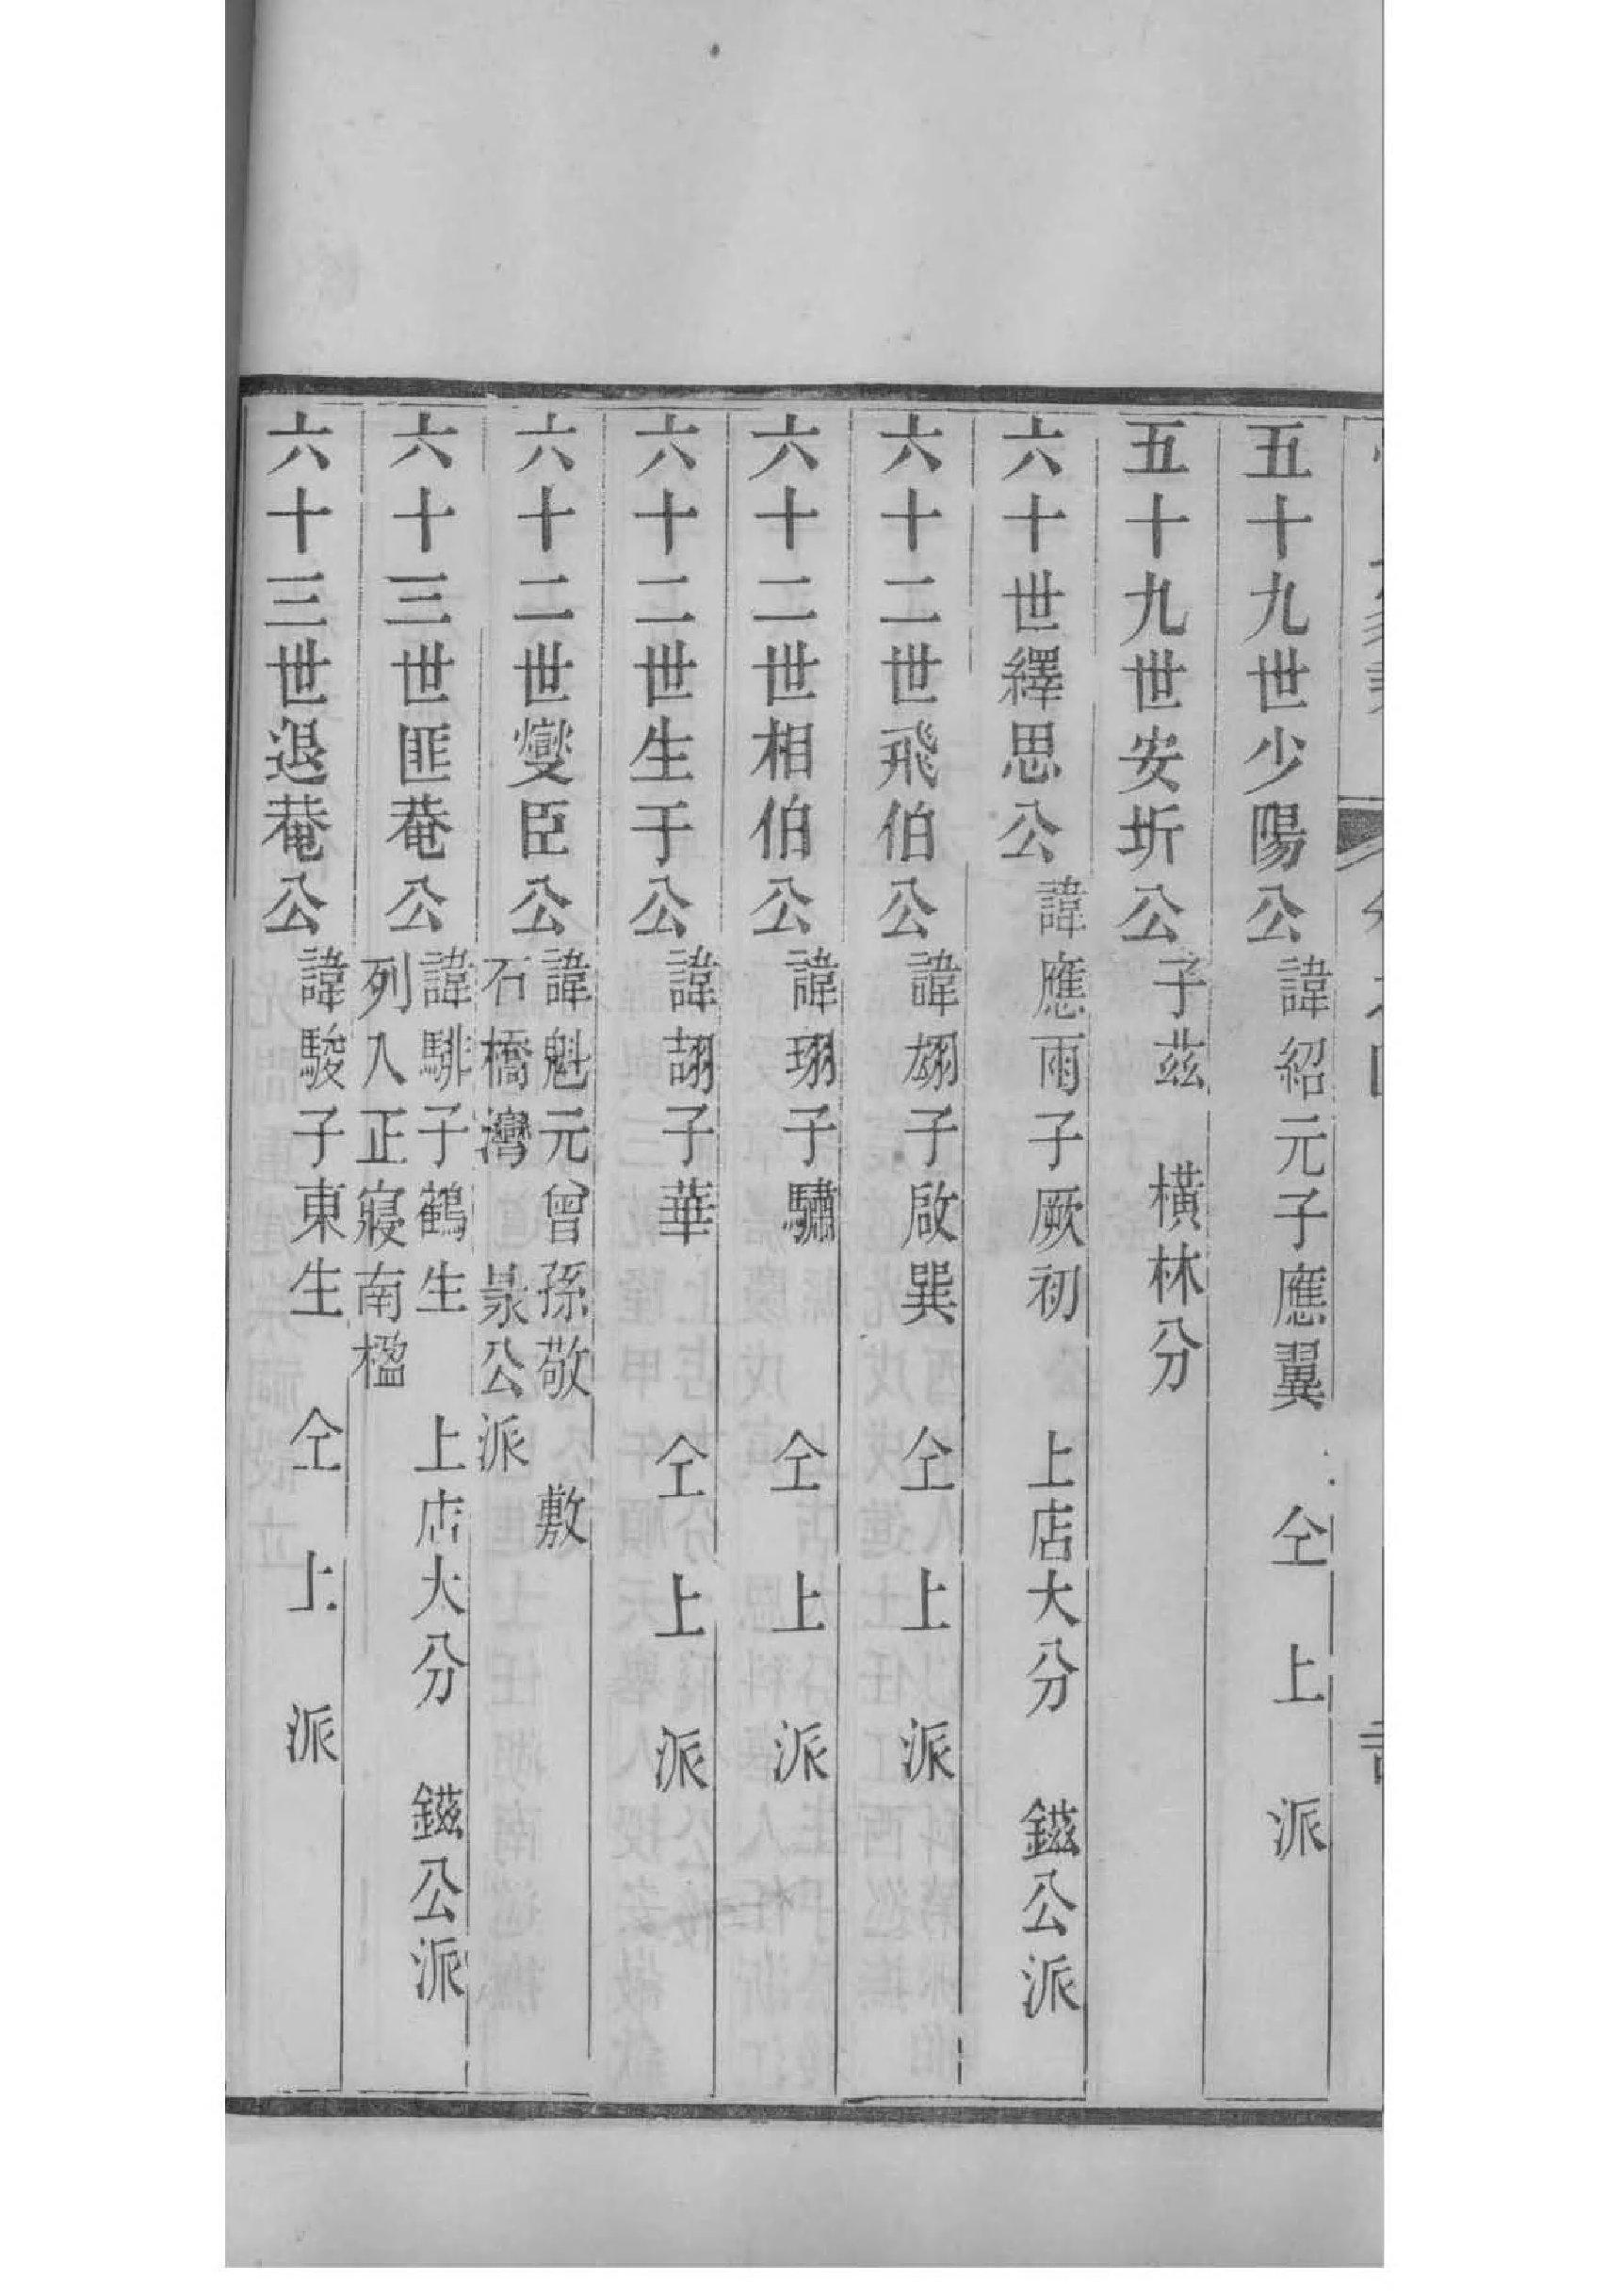 五十九世少陽公 諱紹元子應翼 仝 上 派
五十九世安圻公 子茲 橫林分
六十世繹思公 諱應雨子厥初 上店大分 鎡公派
六十二世飛伯公 諱翃子啟巽 仝 上 派
六十二世相伯公 諱珝子驌 仝 上 派
六十二世生于公 諱詡子華 仝 上 派
六十二世燮臣公 諱魁元曾孫敬 敷
石橋灣 㫤公派
六十三世匪菴公 諱騑子鶴生 上店大分 鎡公派
列入正寢南楹
六十三世退菴公 諱駿子東生 仝 上 派